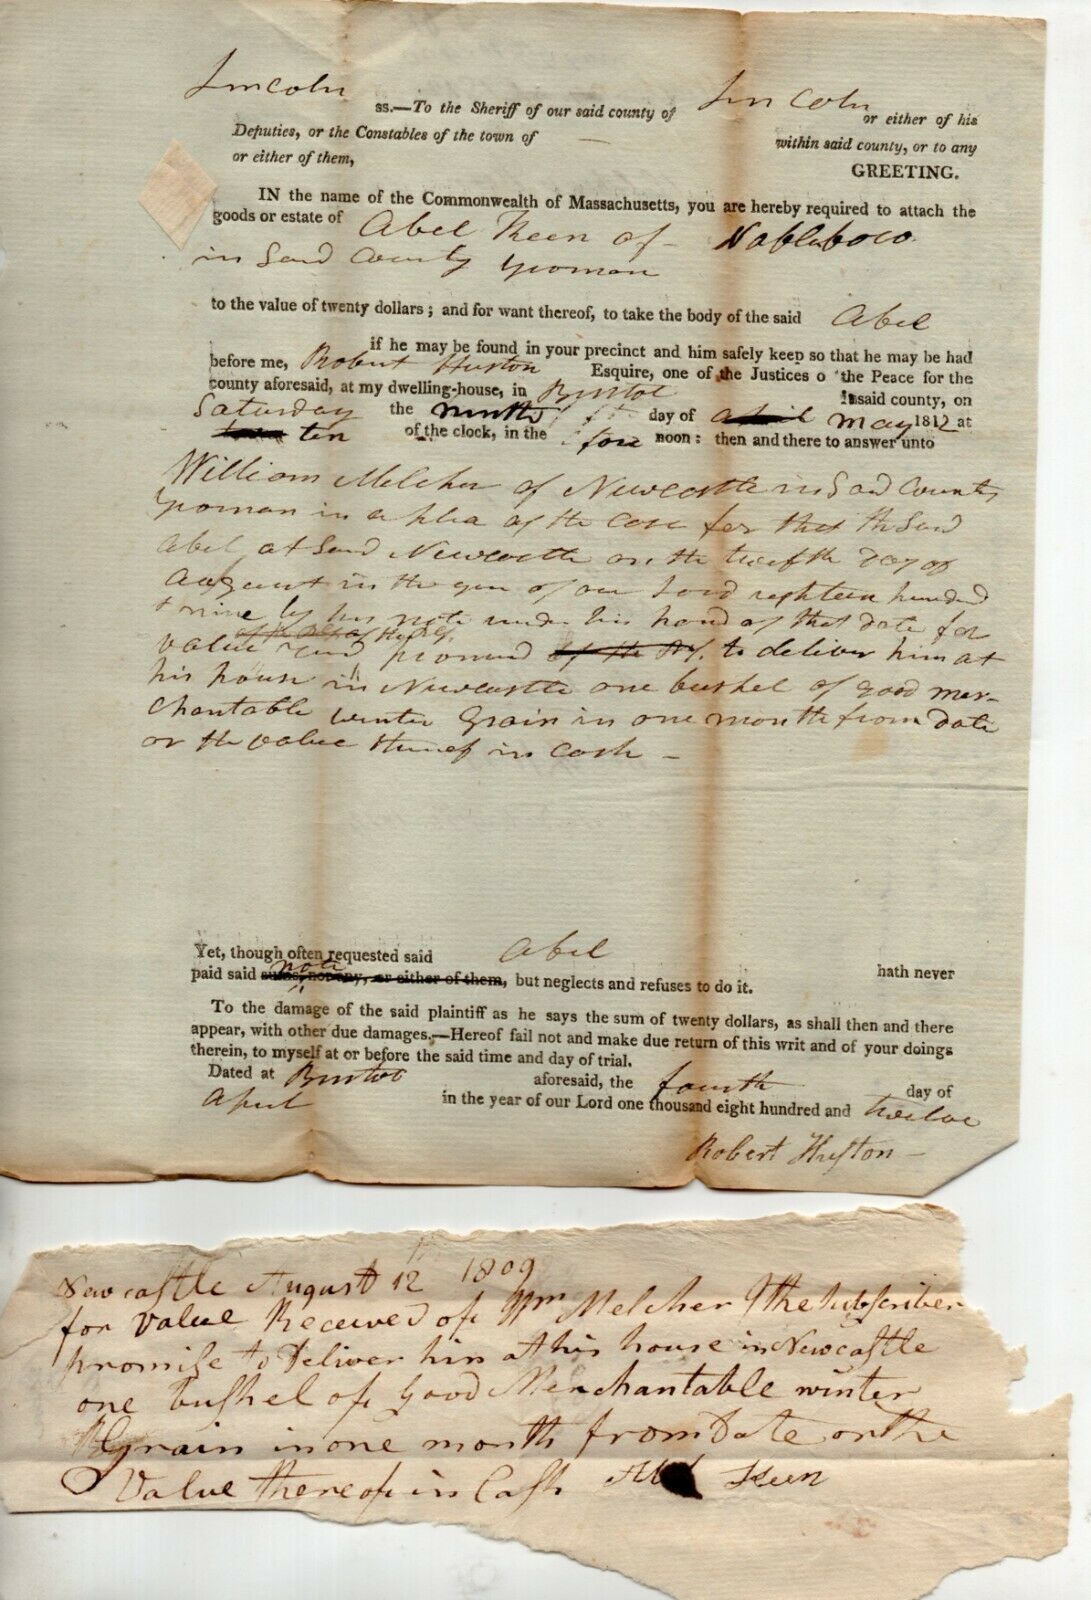 Lincoln ss.—To the Sheriff of our said county of Lincoln or either of his
Deputies, or the Constables of the town of — within said county, or to any
or either of them, GREETING.
IN the name of the Commonwealth of Massachusetts, you are hereby required to attach the
goods or estate of Abel Keen of Nobleboro
in Said County yeoman
to the value of twenty dollars; and for want thereof, to take the body of the said Abel
if he may be found in your precinct and him safely keep so that he may be had
before me, Robert Huston Esquire, one of the Justices o the Peace for the
county aforesaid, at my dwelling-house, in Bristol In said county, on
Saturday the ninth day of april may 1812 at
ten of the clock, in the fore noon: then and there to answer unto
William Melcher of Newcastle in Said County
yoman in a plea of the case for that the Said
Abel at Said Newcastle on the twelfth day of
August in the year of our Lord eighteen hundred
& nine by his note under his hand of that date for
value promised of the to deliver him at
his house in Newcastle one bushel of good mer-
chantable winter Grain in one month from date
or the value thereof in cash —
Yet, though often requested said Abel hath never
paid said note sums, nor any, or either of them, but neglects and refuses to do it.
To the damage of the said plaintiff as he says the sum of twenty dollars, as shall then and there
appear, with other due damages.—Hereof fail not and make due return of this writ and of your doings
therein, to myself at or before the said time and day of trial.
Dated at Bristol aforesaid, the fourth day of
April in the year of our Lord one thousand eight hundred and twelve
Robert Huston —
Newcastle August 12 1809
for value Received of Wm Melcher I the subscriber
promise to Deliver him at his house in Newcastle
one bushel of Good Merchantable winter
Grain in one month from Date or the
Value thereof in Cash Abel Keen